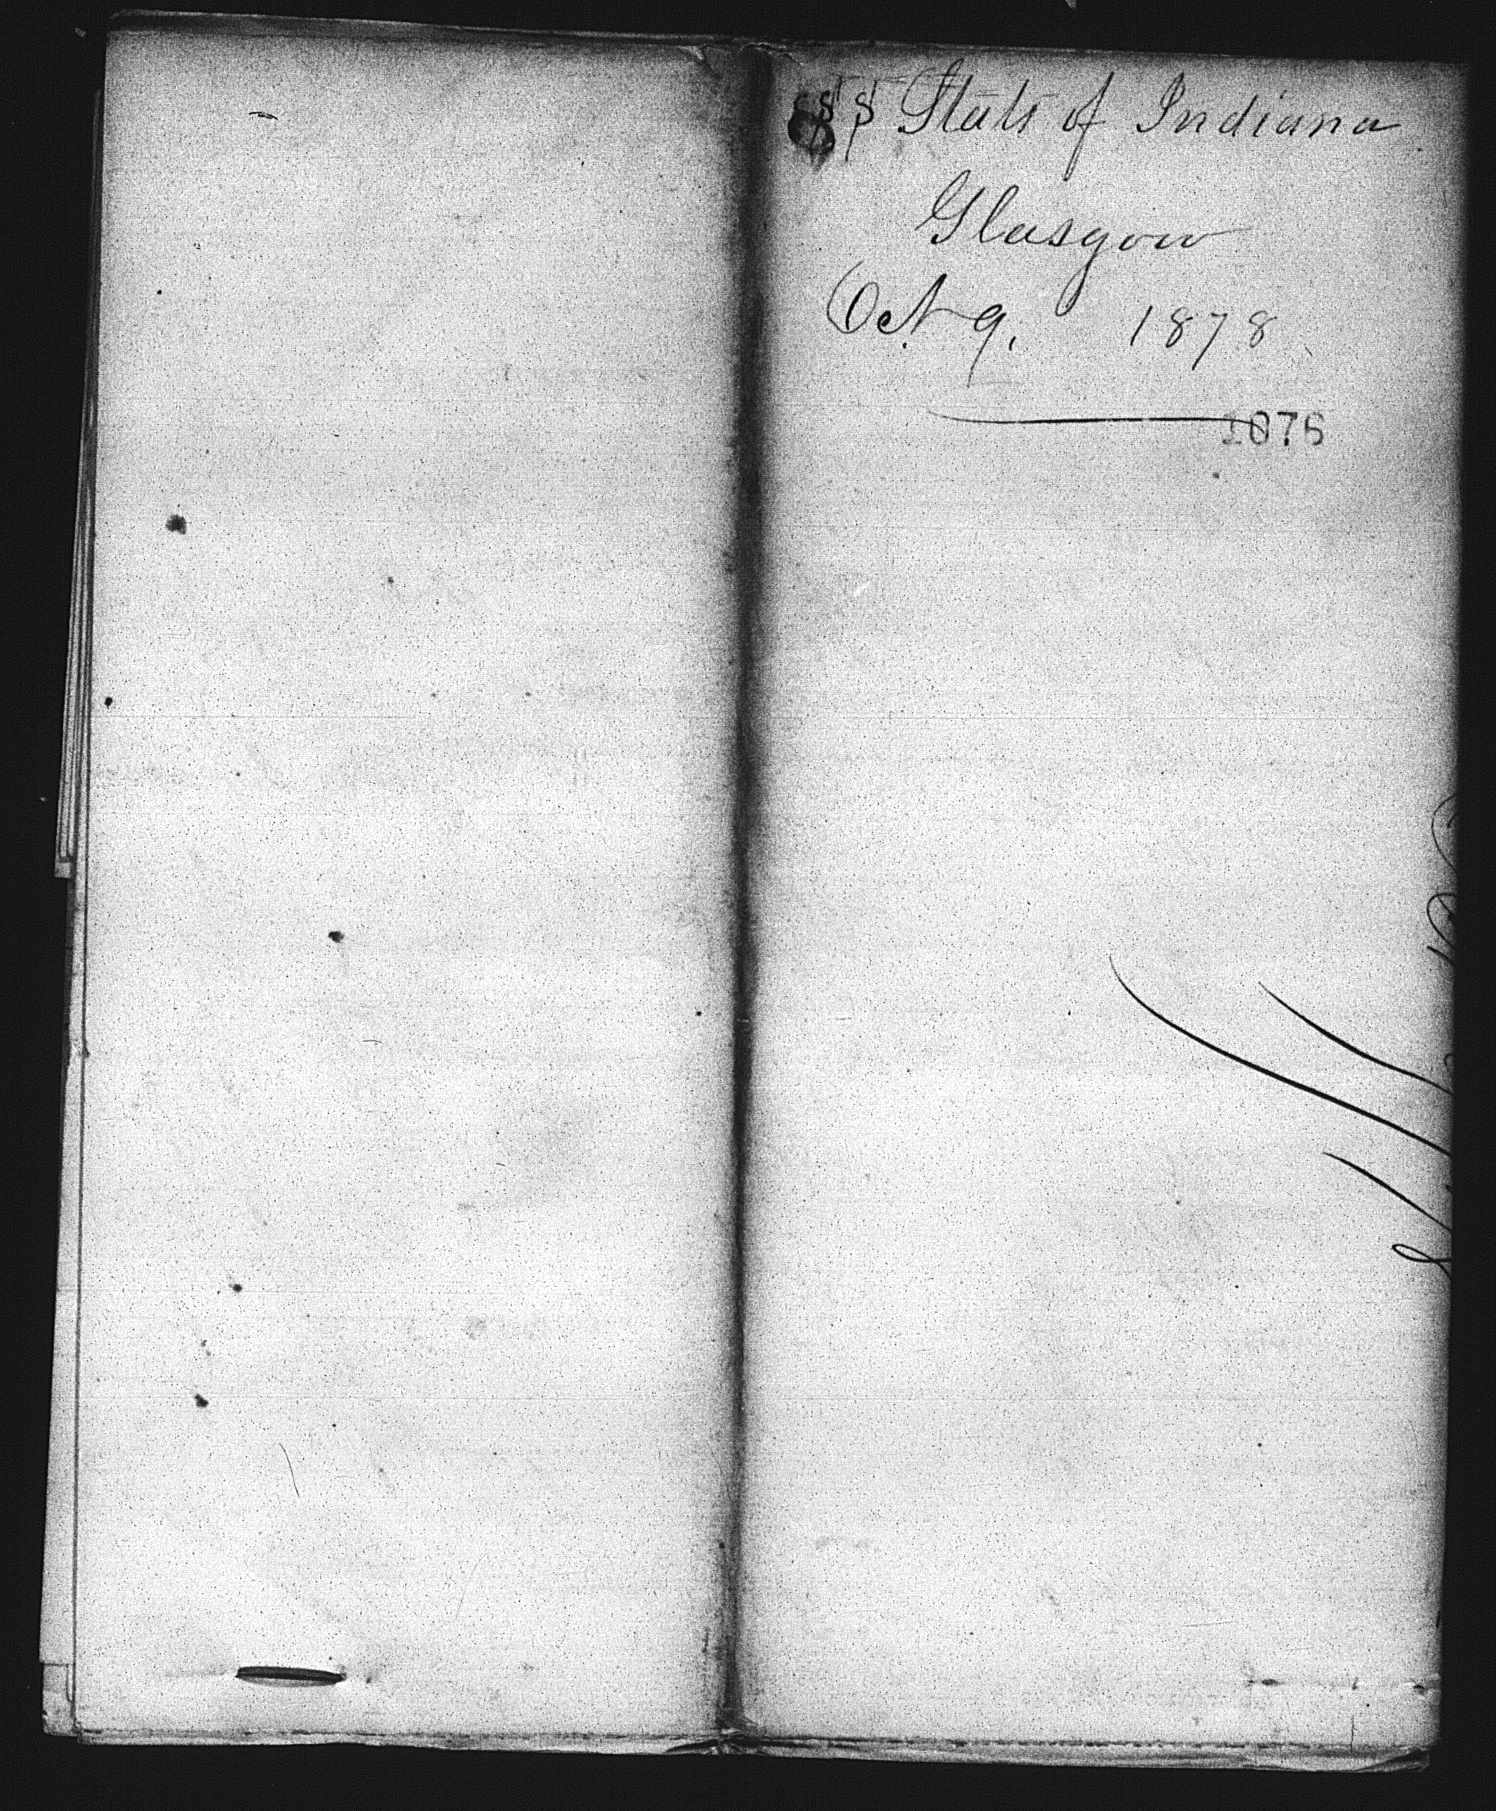 SS State of Indiana
Glasgow
Oct 9, 1878
1076